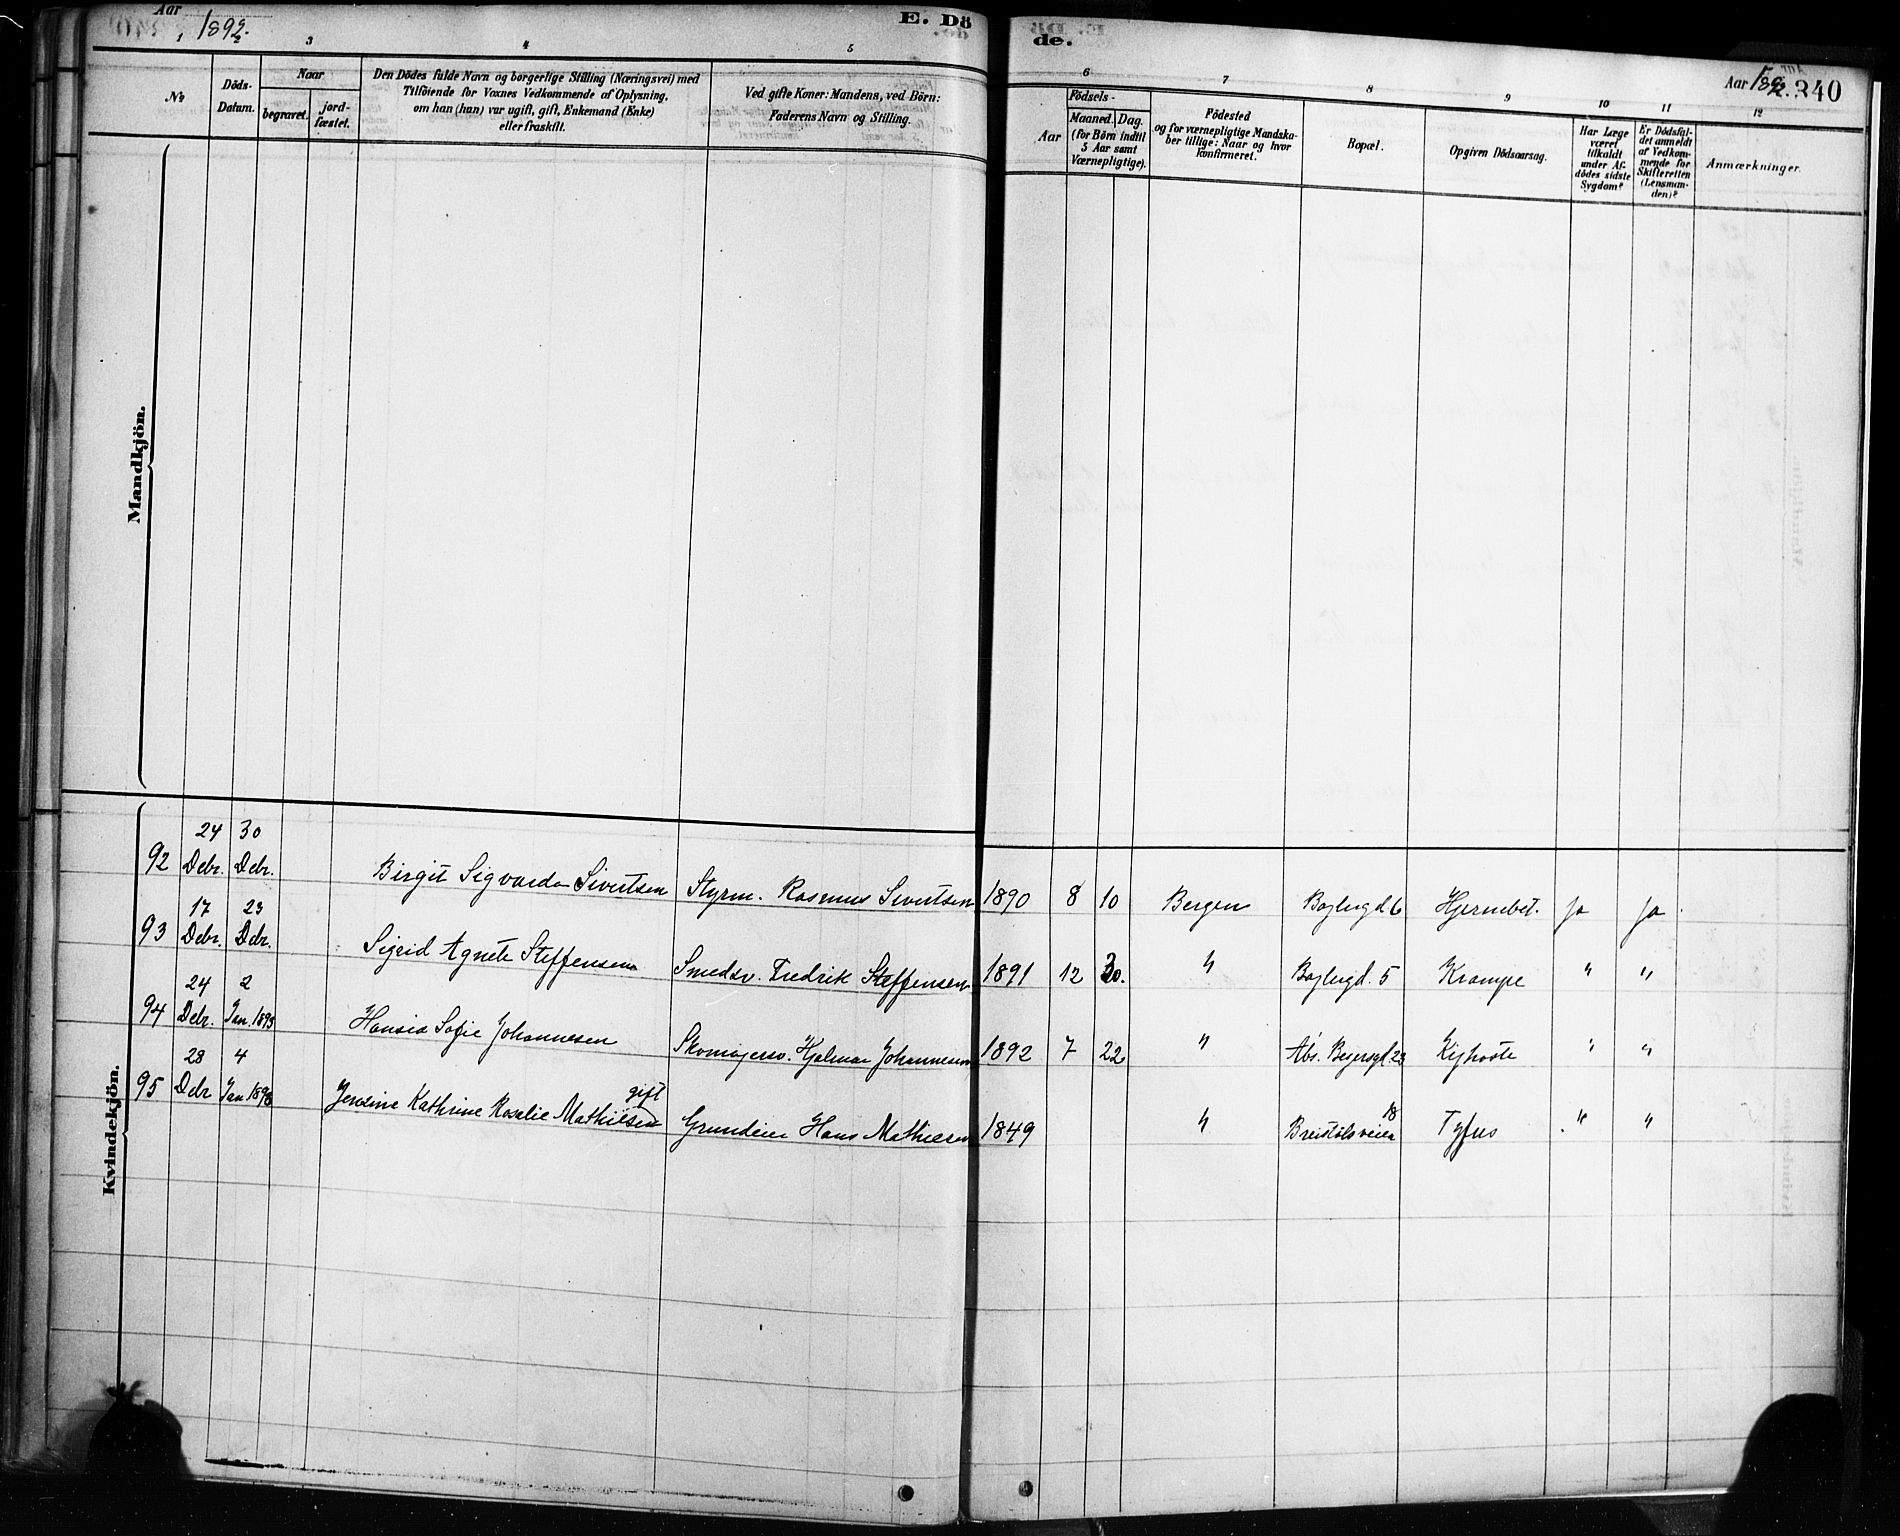 Aar 1892.
E. Dö
de.
Aar 1892. 340
1 2 3 4 5
6 7 8 9 10 11 12
No
Döds-
Datum.
Naar
begravet.
jord-
fæstet.
Den Dödes fulde Navn og borgerlige Stilling (Næringsvei) med
Tilföiende for Voxnes Vedkommende af Oplysning,
om han (hun) var ugift, gift, Enkemand (Enke)
eller fraskilt.
Ved gifte Koner: Mandens, ved Börn:
Faderens Navn og Stilling.
Födsels-
Aar
Maaned. Dag.
(for Börn indtil
5 Aar samt
Værnepligtige).
Födested
og for værnepligtige Mandska-
ber tillige: Naar og hvor
konfirmeret.
Bopæl.
Opgiven Dödsaarsag.
Har Læge
været
tilkaldt
under Af-
dödes sidste
Sygdom?
Er Dödsfal-
det anmeldt
af Vedkom-
mende for
Skifteretten
(Lensman-
den)?
Anmærkninger.
Mandkjön.
Kvindekjön.
92 24 Debr. 30 Debr. Birgit Sigvarda Sivertsen Styrm. Rasmus Sivertsen 1890 8 10 Bergen Bøglugd 6 Hjernebet. ja ja
93 17 Debr. 23 Debr. Sigrid Agnete Steffensen Smedsv. Fredrik Steffensen 1891 12 30. " Bøglugd. 5 Krampe " "
94 24 Debr. 2 Jan. 1893 Hansia Sofie Johannesen Skomagersv. Hjalmar Johannesen 1892 7 22 " Abs. Beyersgd. 23 Kighoste " "
95 28 Debr 4 Jan 1893 Jensine Kathrine Rosalie Mathiesen gift Grundeier Hans Mathiesen 1849 " Breistölsveien 18 Tyfus " "